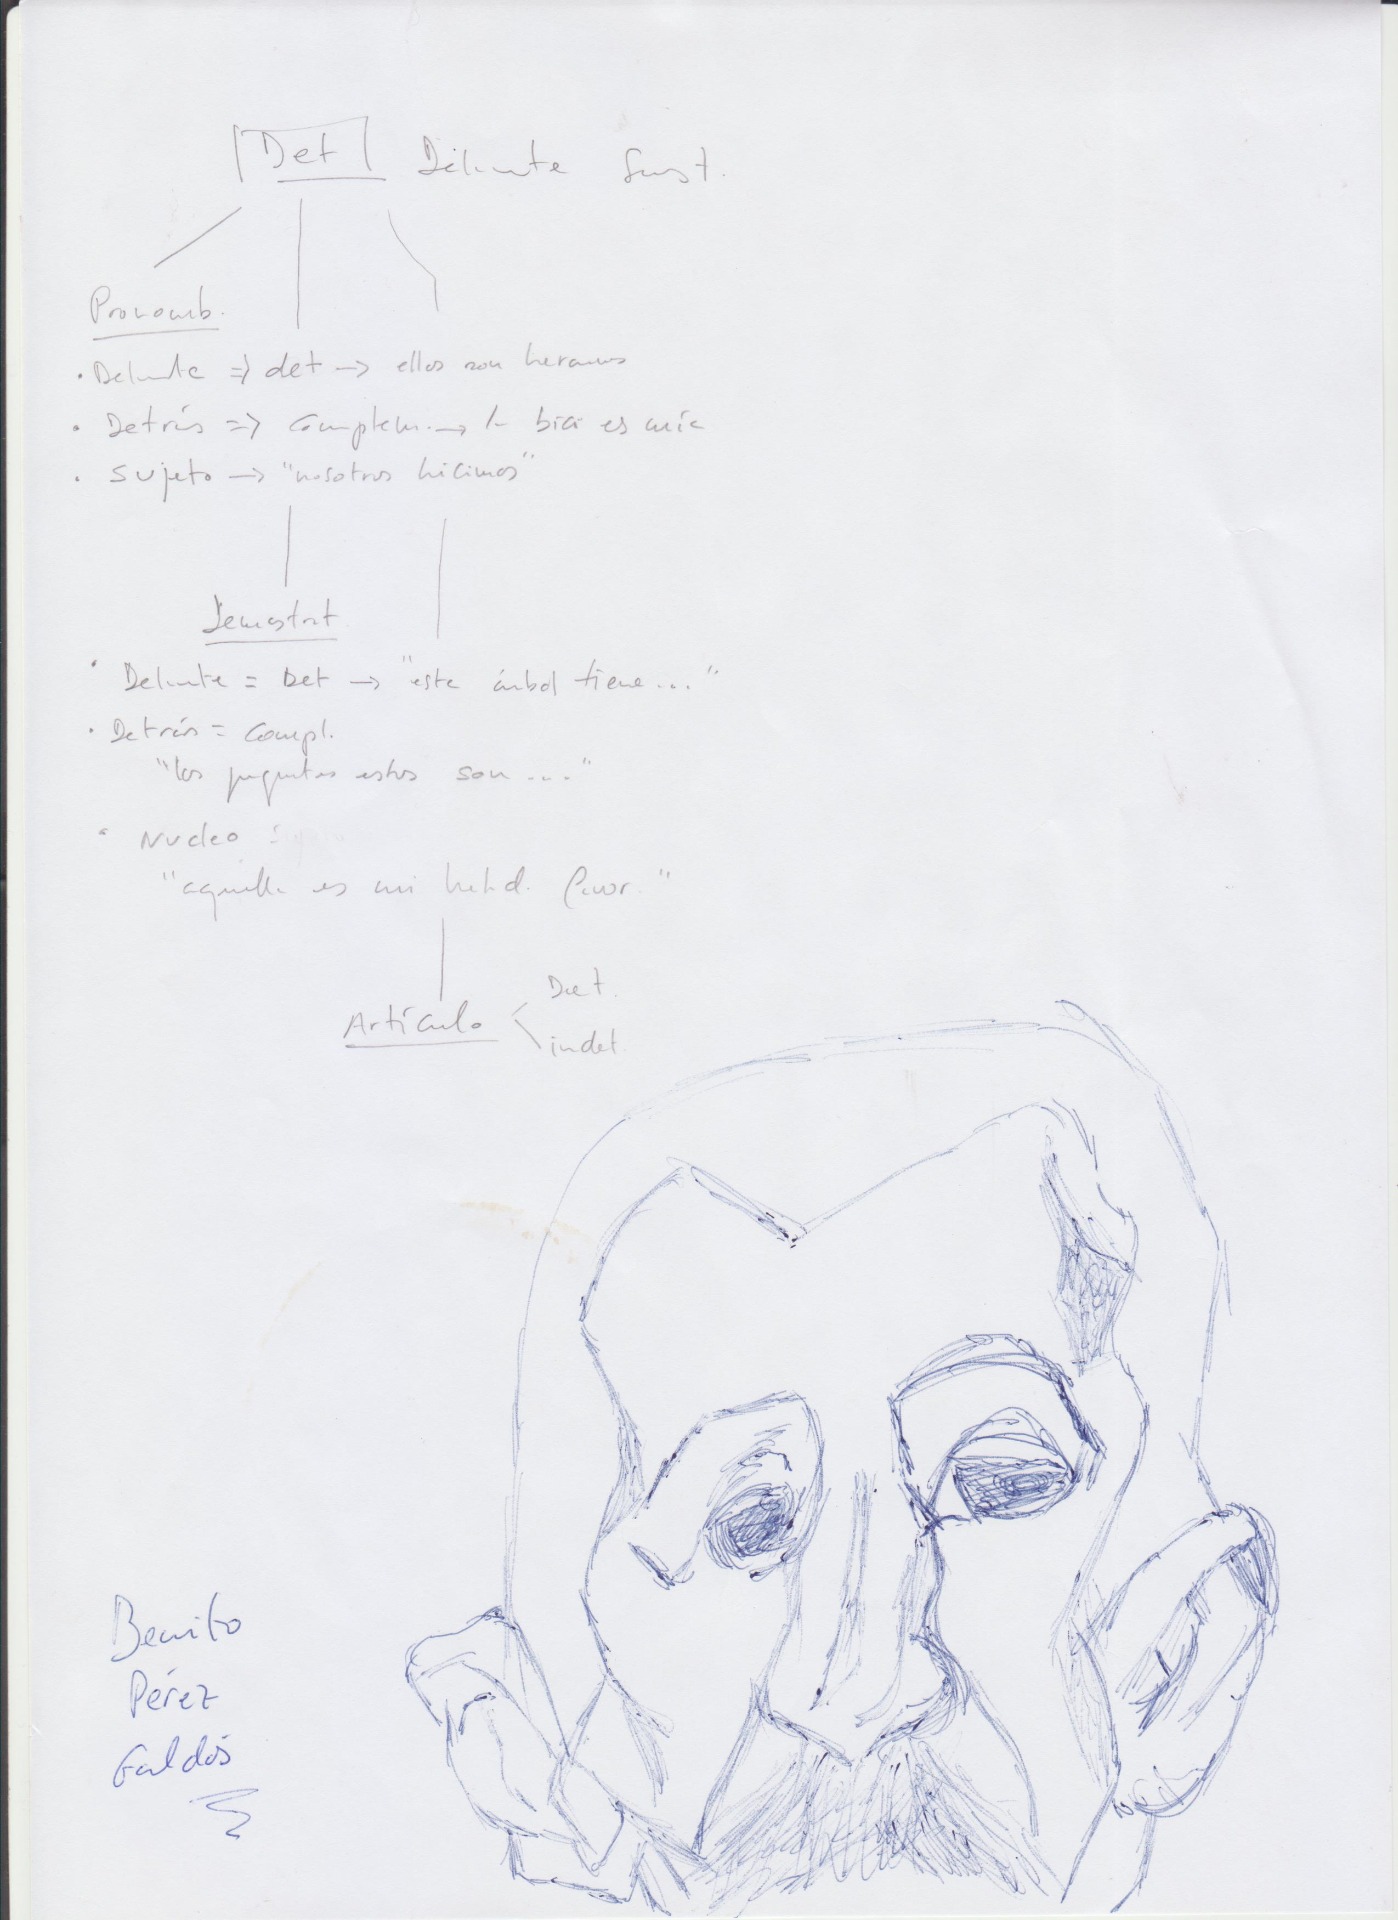 Det Delante Sust.
Pronomb.
• Delante => det -> ellos son hermanos
• Detrás => Complem. -> la bici es mía
• Sujeto -> "nosotros hicimos"
Demostrat
• Delante = Det -> "este árbol tiene..."
• Detrás = Compl.
"los juguetes estos son...."
• Nucleo
"aquella es mi habd. favor."
Artículo < Det.
indet.
Benito
Pérez
Galdós